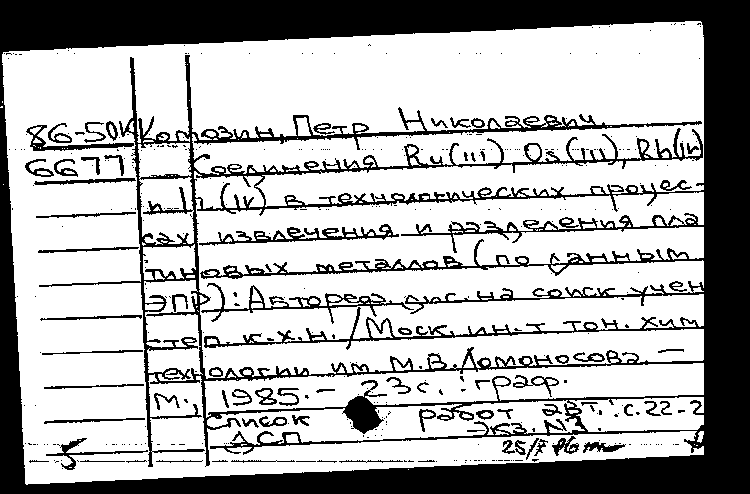 86-50К Комозин, Петр Николаевич.
6677 Соединения Ru(III), Os(III), Rh(IV)
и Ir(IV) в технологических процес-
сах извлечения и разделения пла
тиновых металлов (по данным
ЭПР): Автореф. дис. на соиск. учен
степ. к.х.н. / Моск. ин-т тон. хим
технологии им. М.В. Ломоносова. —
М., 1985. — 23 с. : граф.
Список работ авт.: с. 22-2
ДСП Экз. №
25/7